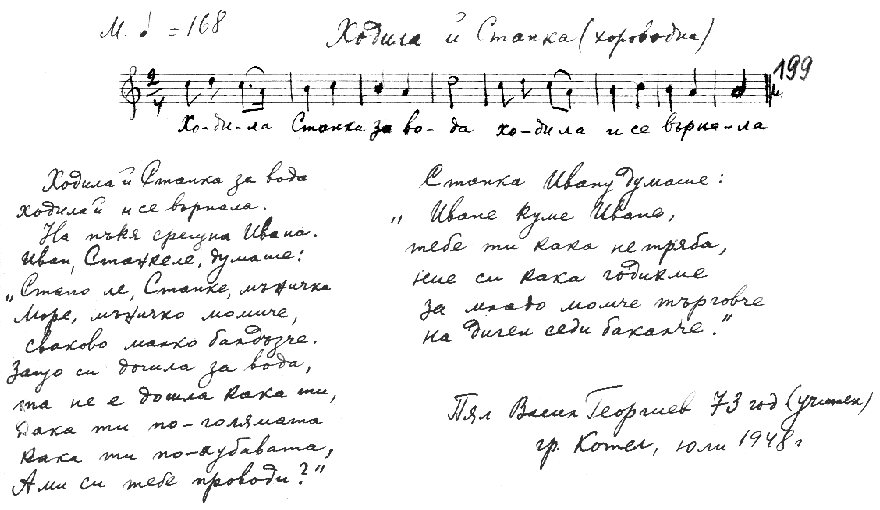 М. ♩ = 168
Ходила й Станка (хороводна)
199
2/4
Хо-ди-ла Станка за во-да хо-ди-ла и се върна-ла
Ходила й Станка за вода
ходила й и се върнала.
На пътя срещна Ивана.
Иван, Станкеле, думаше:
„Стано ле, Станке, мъничка
Море, мъничко момиче,
сваково малко балдъзче.
Защо си дошла за вода,
та не е дошла кака ти,
кака ти по-голямата
кака ти по-хубавата,
Ами си тебе проводи?"
Станка Ивану думаше:
„Иване куме Иване,
тебе ти кака не тряба,
ние си кака годихме
за младо момче търговче
на диген седи бакалче."
Пял Васил Георгиев 73 год (учител)
гр. Котел, юли 1948 г